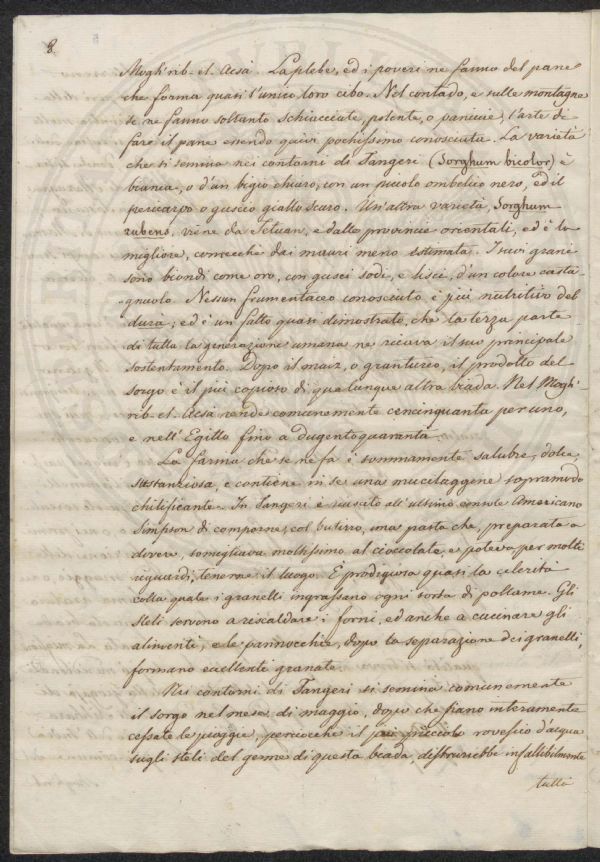 8
Mogh'rib-el-Acsà. La plebe, ed i poveri ne fanno del pane
che forma quasi l'unico loro cibo. Nel contado, e sulle montagne
se ne fanno soltanto schiacciate, polente, o paniccie, l'arte di
fare il pane essendo quivi pochissimo conosciuta. La varietà
che si semina nei contorni di Tangeri (Sorghum bicolor) è
bianca, o d'un bigio chiaro, con un piccolo ombelico nero, ed il
pericarpo o guscio giallo scuro. Un'altra varietà, Sorghum
rubens, viene da Tetuan, e dalle provincie orientali, ed è la
migliore, comecchè dai mauri meno estimata. I suoi grani
sono biondi come oro, con gusci sodi, e lisci, d'un colore casta-
-gnuolo. Nessun frumentaceo conosciuto è più nutritivo del
durà; ed è un fatto quasi dimostrato, che la terza parte
di tutta la generazione umana ne riceva il suo principale
sostentamento. Dopo il maiz, o granturco, il prodotto del
sorgo è il più copioso di qualunque altra biada. Nel Mogh'
rib-el-Acsà rende comunemente cencinquanta per uno,
e nell'Egitto fino a dugentoquaranta.
La farina che se ne fa è sommamente salubre, dolce,
sustanziosa, e contiene in se una mucilaggene sopramodo
chilificante. In Tangeri è riuscito all'ultimo console Americano
Simpson di comporne, col butirro, una pasta che, preparata a
dovere, somigliava moltissimo al cioccolate, e poteva per molti
riguardi, tenerne il luogo. È prodigiosa quasi la celerità
colla quale i granelli ingrassano ogni sorta di pollame. Gli
steli servono a riscaldare i forni, ed anche a cucinare gli
alimenti, e le pannocchie, dopo la separazione dei granelli,
formano eccellenti granate.
Nei contorni di Tangeri si semina comunemente
il sorgo nel mese di maggio, dopo che siano interamente
cessate le piogge, perciocchè il più piccolo rovescio d'acqua
sugli steli del germe di questa biada, distruirebbe infallibilmente
tutti